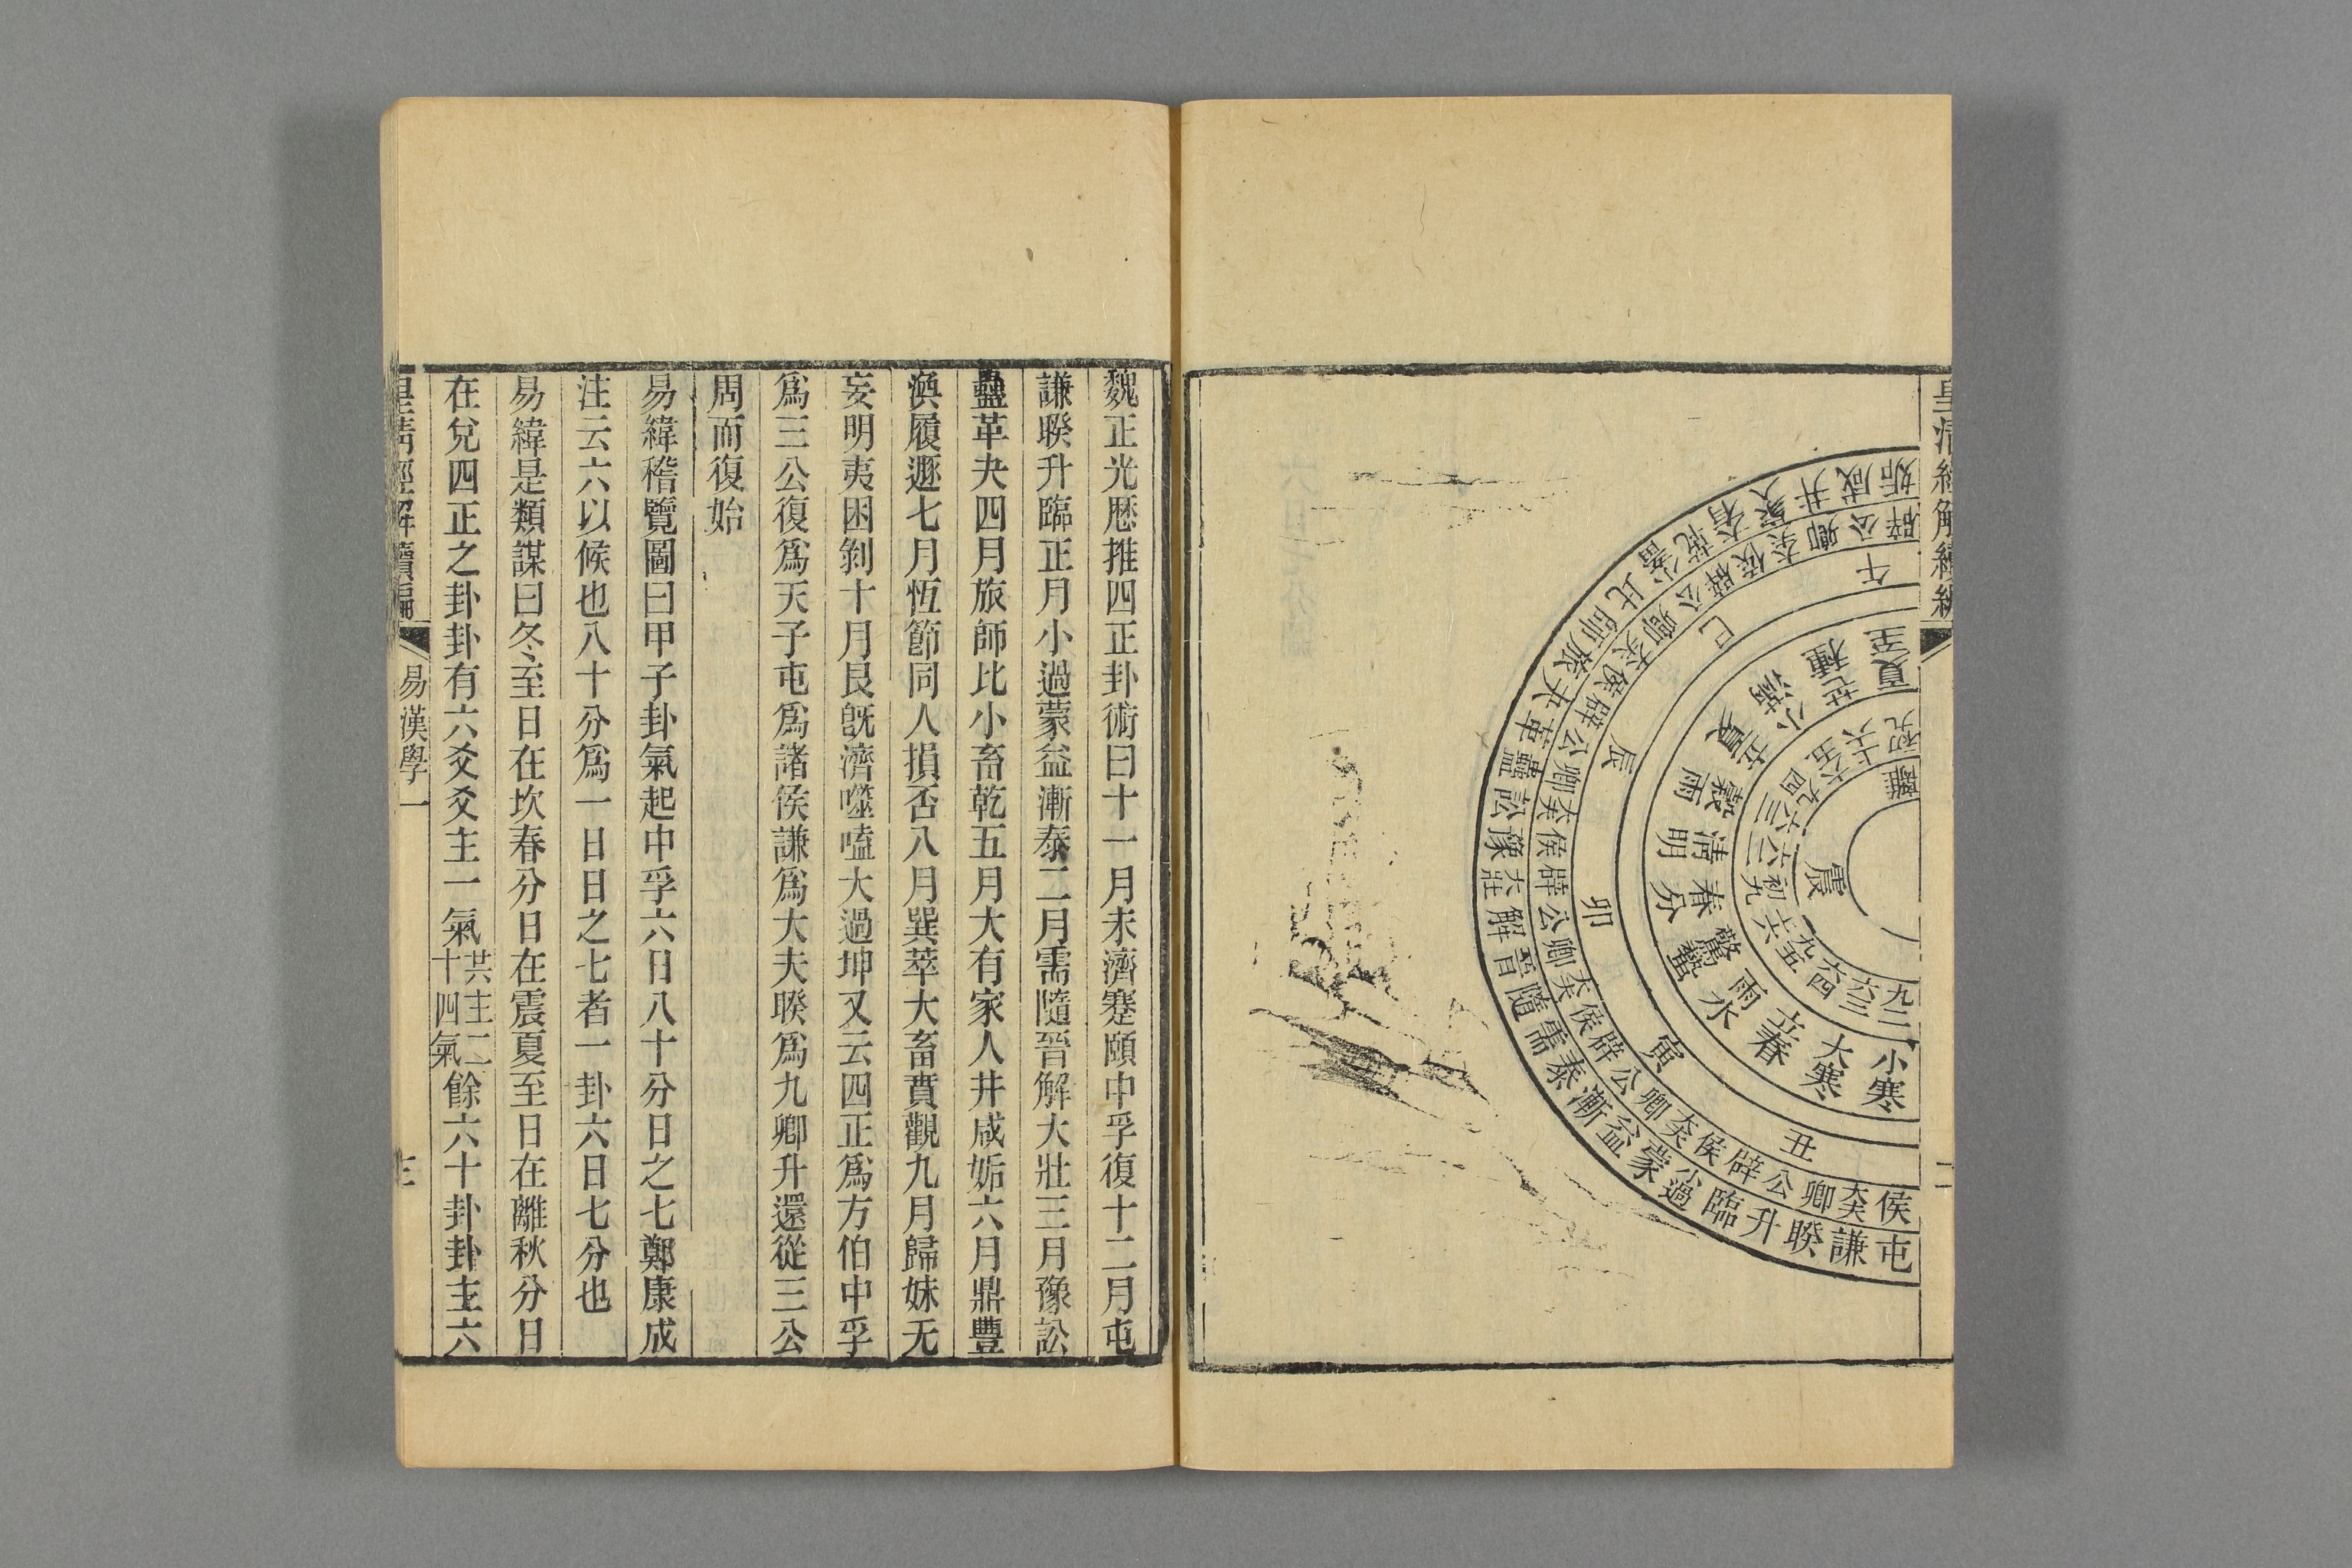 皇清經解續編
二
屯謙睽升臨小過蒙益漸泰需隨晉解大壯豫訟蠱革夬旅師比小畜乾大有家人井咸姤
侯大夫卿公辟侯大夫卿公辟侯大夫卿公辟侯大夫卿公辟侯大夫卿公辟侯大夫卿公辟
丑寅卯辰巳午
小寒大寒立春雨水驚蟄春分清明穀雨立夏小滿芒種夏至
九二六三六四九五上六初九六二六三九四六五上六初九
震離
魏正光厯推四正卦術曰十一月未濟蹇頤中孚復十二月屯
謙睽升臨正月小過蒙益漸泰二月需隨晉解大壯三月豫訟
蠱革夬四月旅師比小畜乾五月大有家人井咸姤六月鼎豐
渙履遯七月恆節同人損否八月巽萃大畜賁觀九月歸妹无
妄明夷困剝十月艮旣濟噬嗑大過坤又云四正爲方伯中孚
爲三公復爲天子屯爲諸侯謙爲大夫睽爲九卿升還從三公
周而復始
易緯稽覽圖曰甲子卦氣起中孚六日八十分日之七鄭康成
注云六以候也八十分爲一日日之七者一卦六日七分也
易緯是類謀曰冬至日在坎春分日在震夏至日在離秋分日
在兌四正之卦卦有六爻爻主一氣共主二十四氣餘六十卦卦主六
皇清經解續編
易漢學一
三